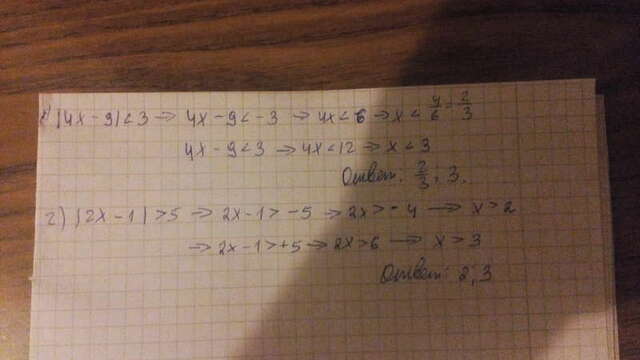 |4x-9|<3 → 4x-9<-3 → 4x<6 → x<4/6=2/3
4x-9<3 → 4x<12 → x<3
Ответ: 2/3; 3.
г) |2x-1|>5 → 2x-1>-5 → 2x>-4 → x>2
→ 2x-1>+5 → 2x>6 → x>3
Ответ: 2; 3